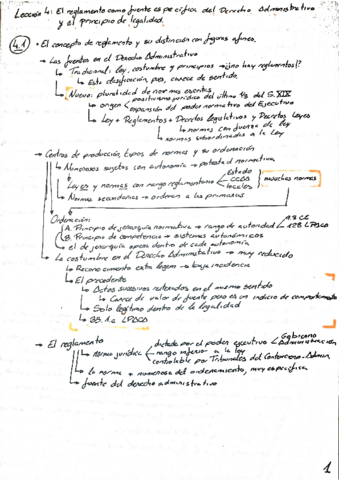 Lección 4: El reglamento como fuente específica del Derecho Administrativo
y el principio de legalidad.
4.1 • El concepto de reglamento y su distinción con figuras afines.
→ Las fuentes en el Derecho Administrativo
→ Tradicional: ley, costumbre y principios → ¿no hay reglamentos!?
↳ Esta clasificación, pues, carece de sentido
→ Nuevo: pluralidad de normas escritas
↳ origen positivismo jurídico del último 1/3 del S. XIX
expansión del poder normativo del Ejecutivo
↳ Ley + Reglamentos + Decretos Legislativos y Decretos Leyes
↳ normas con fuerza de ley
↳ normas subordinadas a la Ley
→ Centros de producción, tipos de normas y su ordenación
↳ Numerosos sujetos con autonomía → potestad normativa
↳ Leyes y normas con rango reglamentario
Estado
CCAA
locales
muchas normas
↳ Normas secundarias → ordenan a las primarias
↳ Ordenación:
A. Principio de jerarquía normativa → rango de autoridad
9.3 CE
128 LPACA
B. Principio de competencia → sistemas autonómicos
↳ el de jerarquía opera dentro de cada autonomía
↳ La costumbre en el Derecho Administrativo → muy reducido
↳ Reconocimiento extra legem → baja incidencia
↳ El precedente
↳ Actos sucesivos reiterados en el mismo sentido
↳ Carece de valor de fuente pero es un indicio de comportamiento
↳ Solo legítimo dentro de la legalidad
↳ 35.1.c LPACA
→ El reglamento
↳ norma jurídica
dictada por el poder ejecutivo
Gobierno
Administración
rango inferior a la ley
controlable por Tribunales del Contencioso-Admin
↳ la norma + numerosa del ordenamiento, muy específica
↳ fuente del derecho administrativo
1